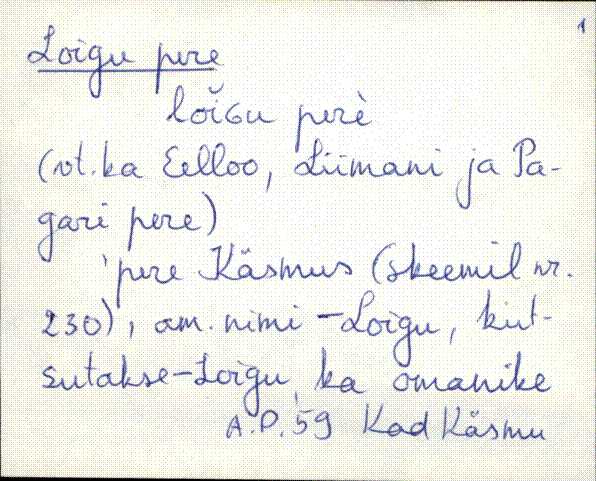 1
Loigu pere
loĭGu perè
(vt.ka Eelloo, Liimani ja Pa-
gari pere)
'pere Käsmus (skeemil nr.
230), am. nimi - Loigu, kut-
sutakse - Loigu, ka omanike
A.P. 59 Kad Käsmu